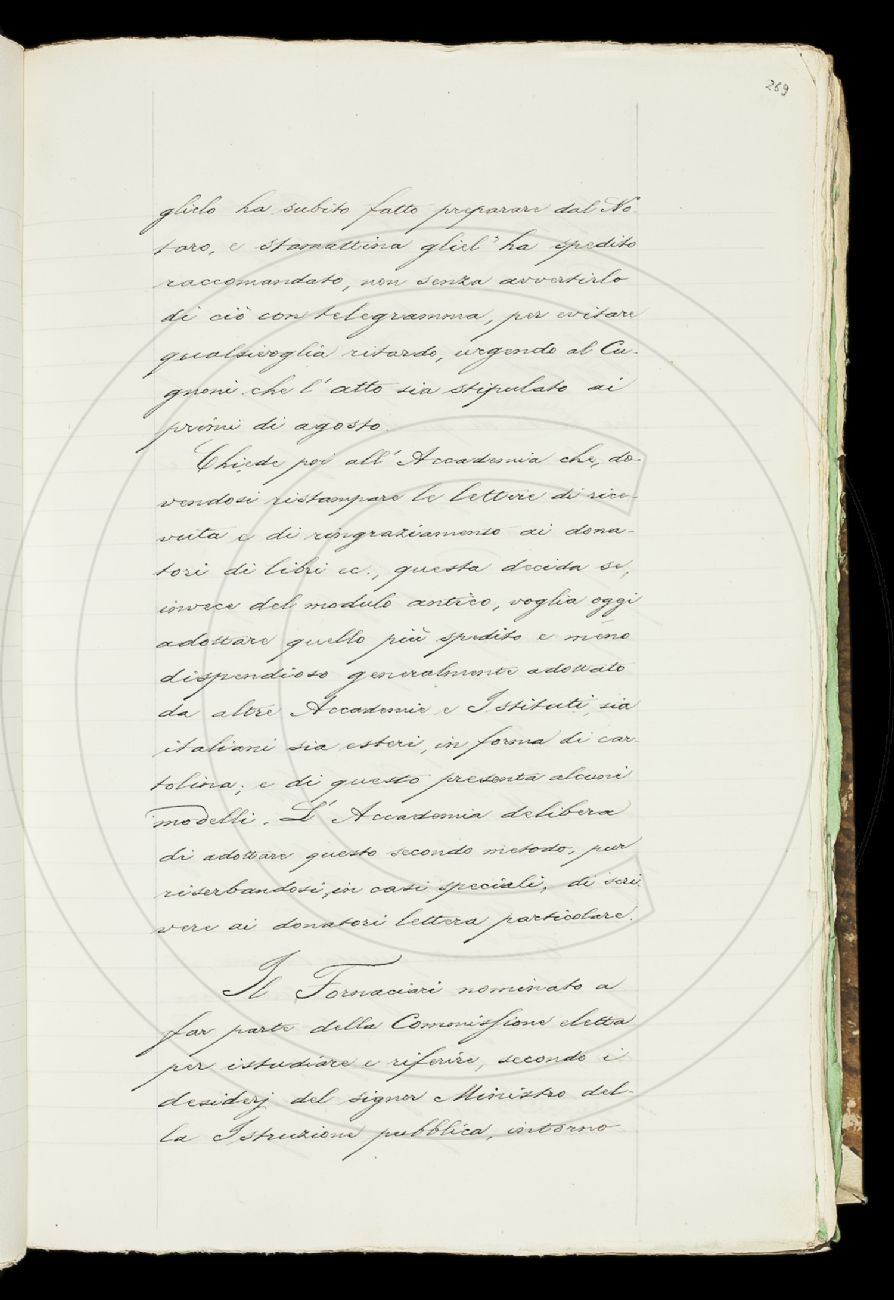 269
glielo ha subito fatto preparare dal No
taro, e stamattina gliel'ha spedito
raccomandato, non senza avvertirlo
di ciò con telegramma, per evitare
qualsivoglia ritardo, urgendo al Cu-
gnoni che l'atto sia stipulato ai
primi di agosto.
Chiede poi all'Accademia che, do-
vendosi ristampare le lettere di rice-
vuta e di ringraziamento ai dona-
tori di libri ec., questa decida se,
invece del modulo antico, voglia oggi
adottare quello più spedito e meno
dispendioso generalmente adottato
da altre Accademie e Istituti, sia
italiani sia esteri, in forma di car-
tolina; e di questo presenta alcuni
modelli. L'Accademia delibera
di adottare questo secondo metodo, pur
riserbandosi, in casi speciali, di scri
vere ai donatori lettera particolare.
Il Fornaciari nominato a
far parte della Commissione eletta
per istudiare e riferire, secondo i
desiderj del signor Ministro del-
la Istruzione pubblica, intorno